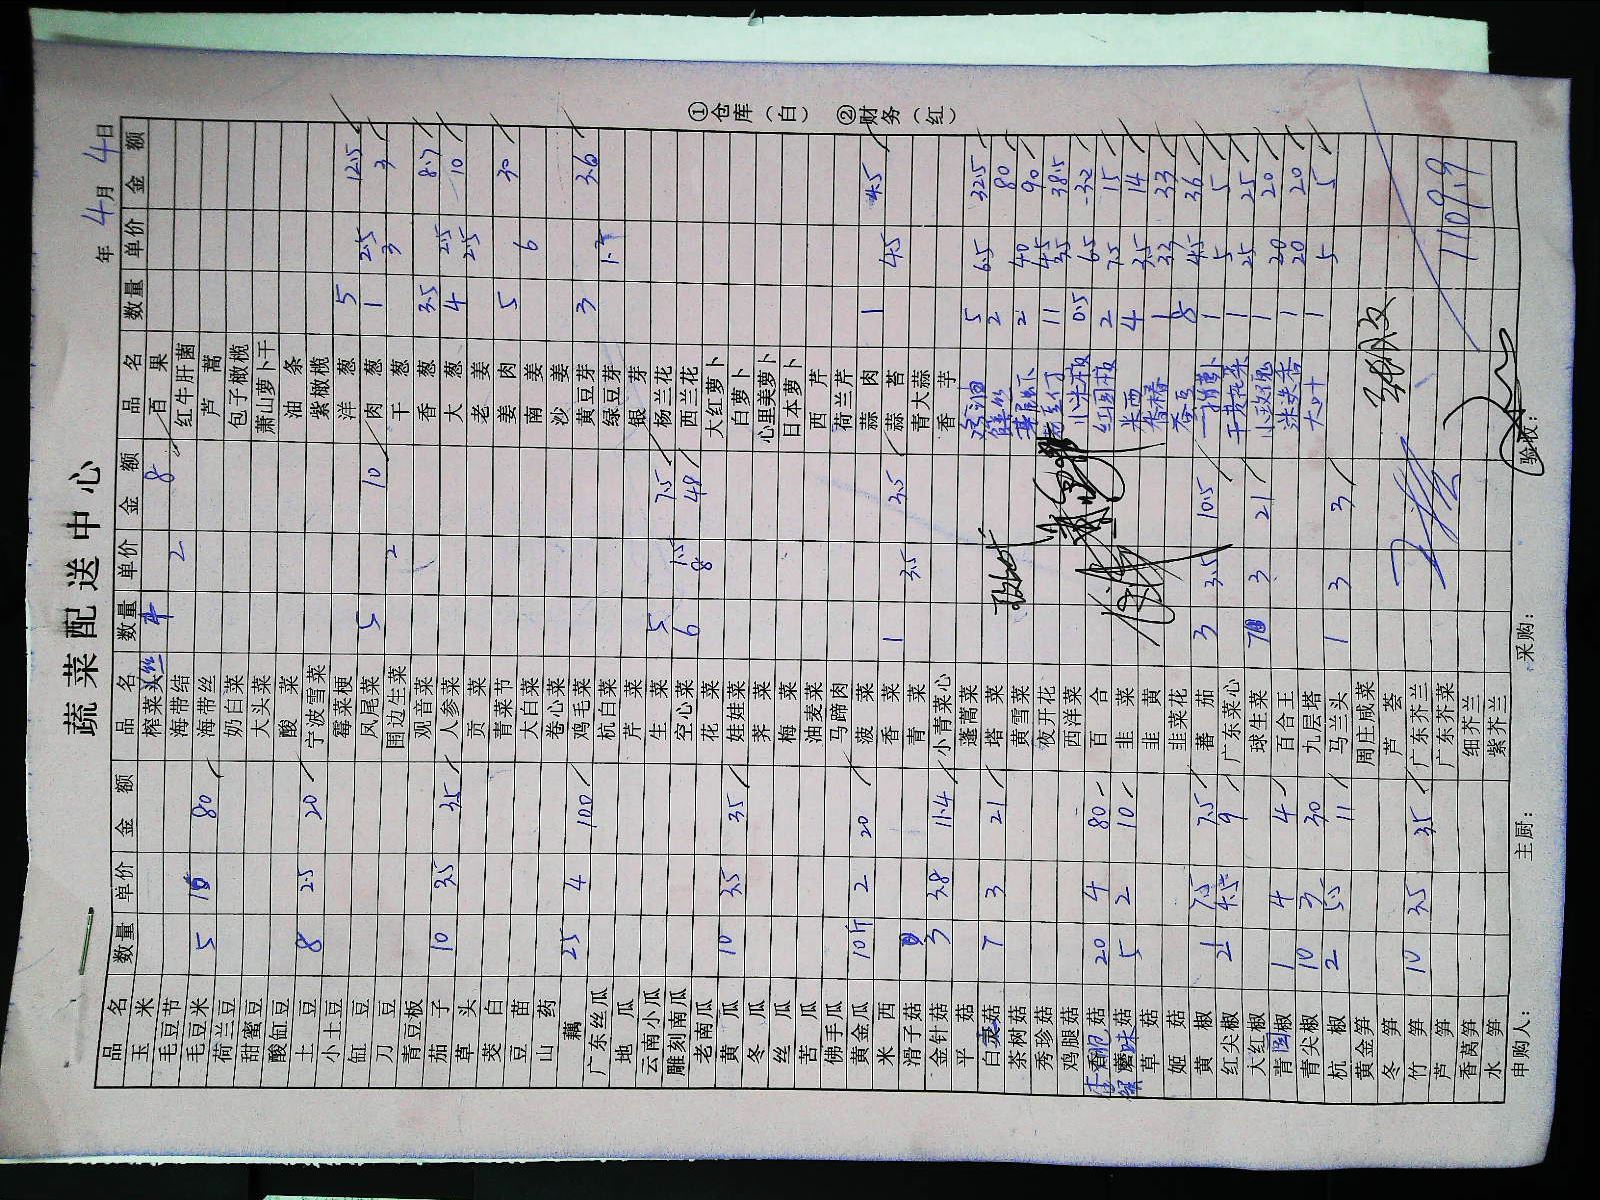 蔬菜配送中心
年 4月 4日
品名 数量 单价 金额 品名 数量 单价 金额 品名 数量 单价 金额
玉米 榨菜丝 4 2 8 百果
毛豆节 海带结 红牛肝菌
毛豆米 5 16 80 海带丝 芦蒿
荷兰豆 奶白菜 包子橄榄
甜蜜豆 大头菜 萧山萝卜干
酸缸豆 酸菜 油条
土豆 8 2.5 20 宁波雪菜 紫橄榄
小土豆 霉菜梗 洋葱 5 2.5 12.5
缸豆 凤尾菜 5 2 10 肉葱 1 3 3
刀豆 围边生菜 干葱
青豆板 观音菜 香葱 3.5 2.5 8.7
茄子 10 3.5 35 人参菜 大葱 4 2.5 10
草头 贡菜 老姜
茭白 青菜节 姜肉 5 6 30
豆苗 大白菜 南姜
山药 卷心菜 沙姜
藕 25 4 100 鸡毛菜 黄豆芽 3 1.2 3.6
广东丝瓜 杭白菜 绿豆芽
地瓜 芹菜 银芽
云南小瓜 生菜 5 1.5 7.5 杨兰花
雕刻南瓜 空心菜 6 8 48 西兰花
老南瓜 花菜 大红萝卜
黄瓜 10 3.5 35 娃娃菜 白萝卜
冬瓜 荠菜 心里美萝卜
丝瓜 梅菜 日本萝卜
苦瓜 油麦菜 西芹
佛手瓜 马蹄肉 荷兰芹
黄金瓜 10斤 2 20 菠菜 蒜肉 1 45 45
米西 香菜 1 3.5 3.5 蒜苔
滑子菇 青菜 青大蒜
金针菇 3 3.8 11.4 小青菜心 香芋
平菇 蓬蒿菜 5 6.5 32.5
白灵菇 7 3 21 塔菜 2 40 80
茶树菇 黄雪菜 2 45 90
秀珍菇 夜开花 11 3.5 38.5
鸡腿菇 西洋菜 小米椒 0.5 6.5 3.2
杏鲍菇 20 4 80 百合 红圆椒 2 7.5 15
蘑菇 5 2 10 韭菜 米西 4 3.5 14
草菇 韭黄 香椿 1 33 33
姬菇 韭菜花 8 4.5 36
黄椒 1 7.5 7.5 蕃茄 3 3.5 10.5 萝卜 1 5 5
红尖椒 2 4.5 9 广东菜心 1 25 25
大红椒 球生菜 7 3 21 小玫瑰 1 20 20
青圆椒 1 4 4 百合王 1 20 20
青尖椒 10 3 30 九层塔 大叶 1 5 5
杭椒 2 5.5 11 马兰头 1 3 3
黄金笋 周庄咸菜
冬笋 芦荟
竹笋 10 3.5 35 广东芥兰
芦笋 广东芥菜
香莴笋 细芥兰 1109.9
水笋 紫芥兰
申购人： 主厨： 采购： 验收：
①仓库（白） ②财务（红）